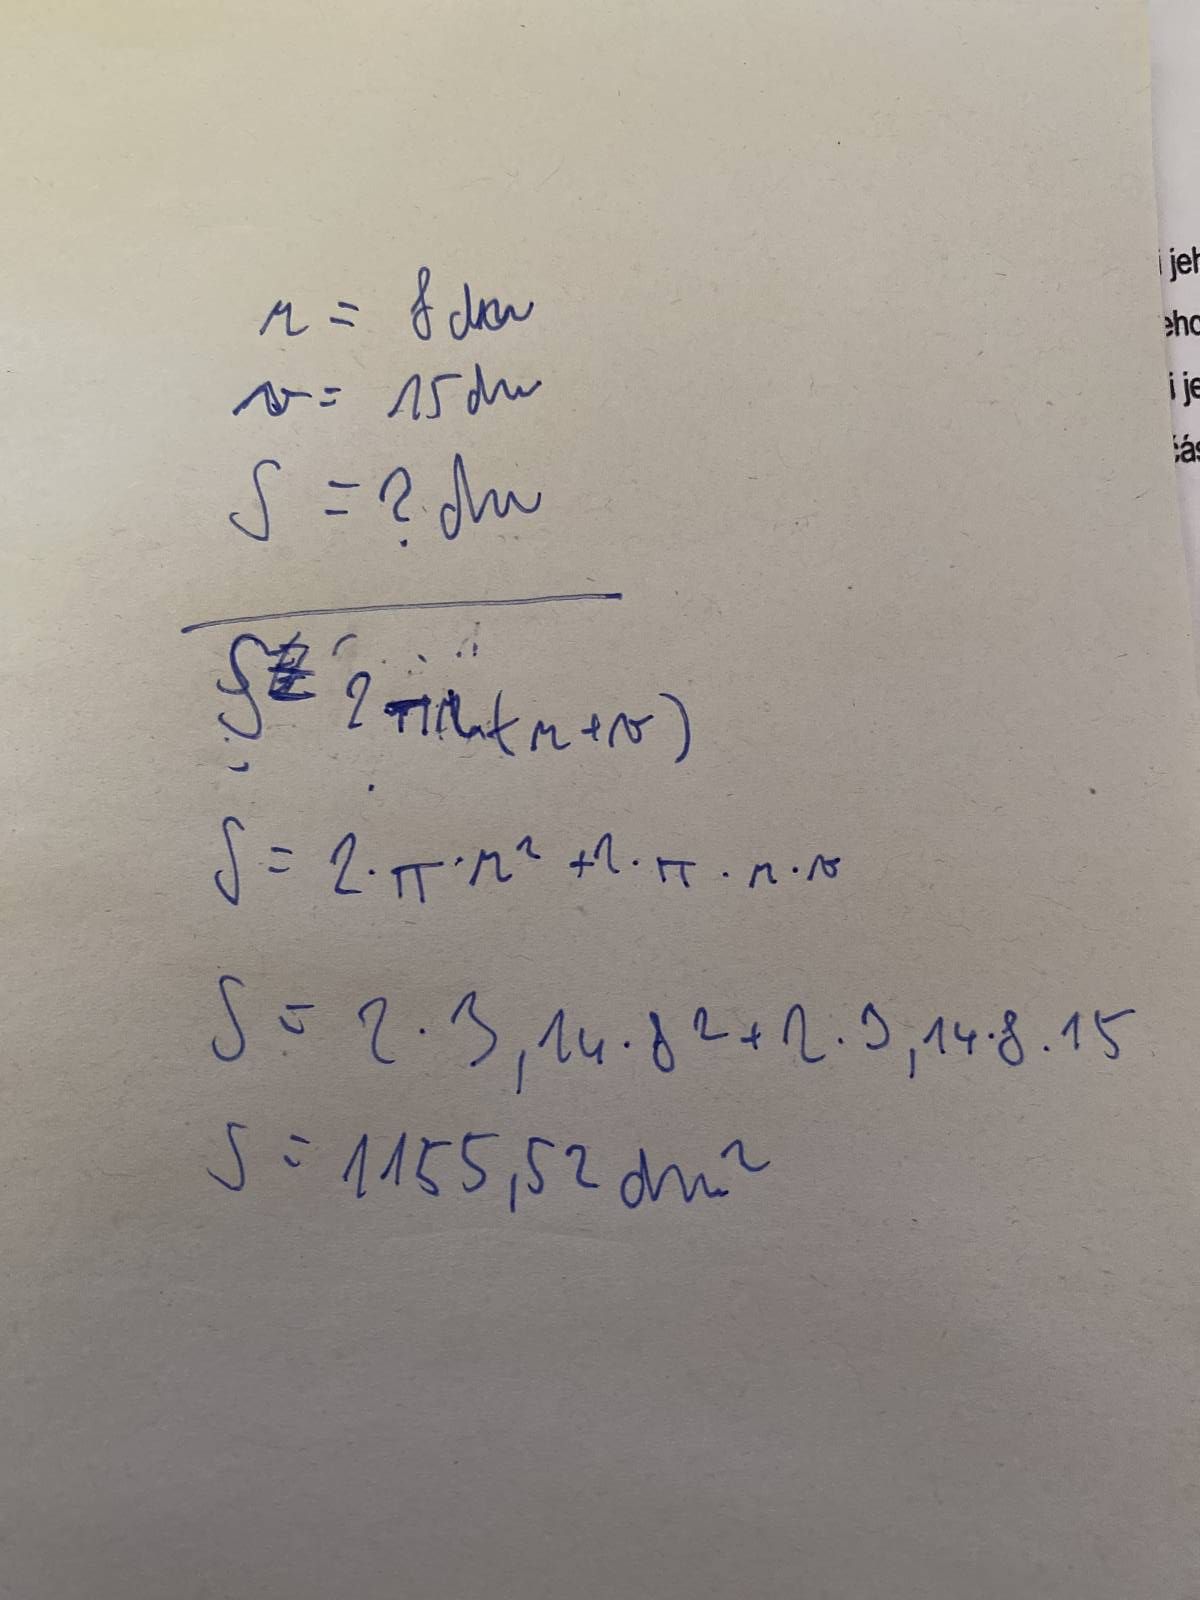 r = 8 dm
v = 15 dm
S = ? dm
S = 2πr(r+v)
S = 2·π·r² + 2·π·r·v
S = 2·3,14·8² + 2·3,14·8·15
S = 1155,52 dm²
i jeh
eho
i je
čás